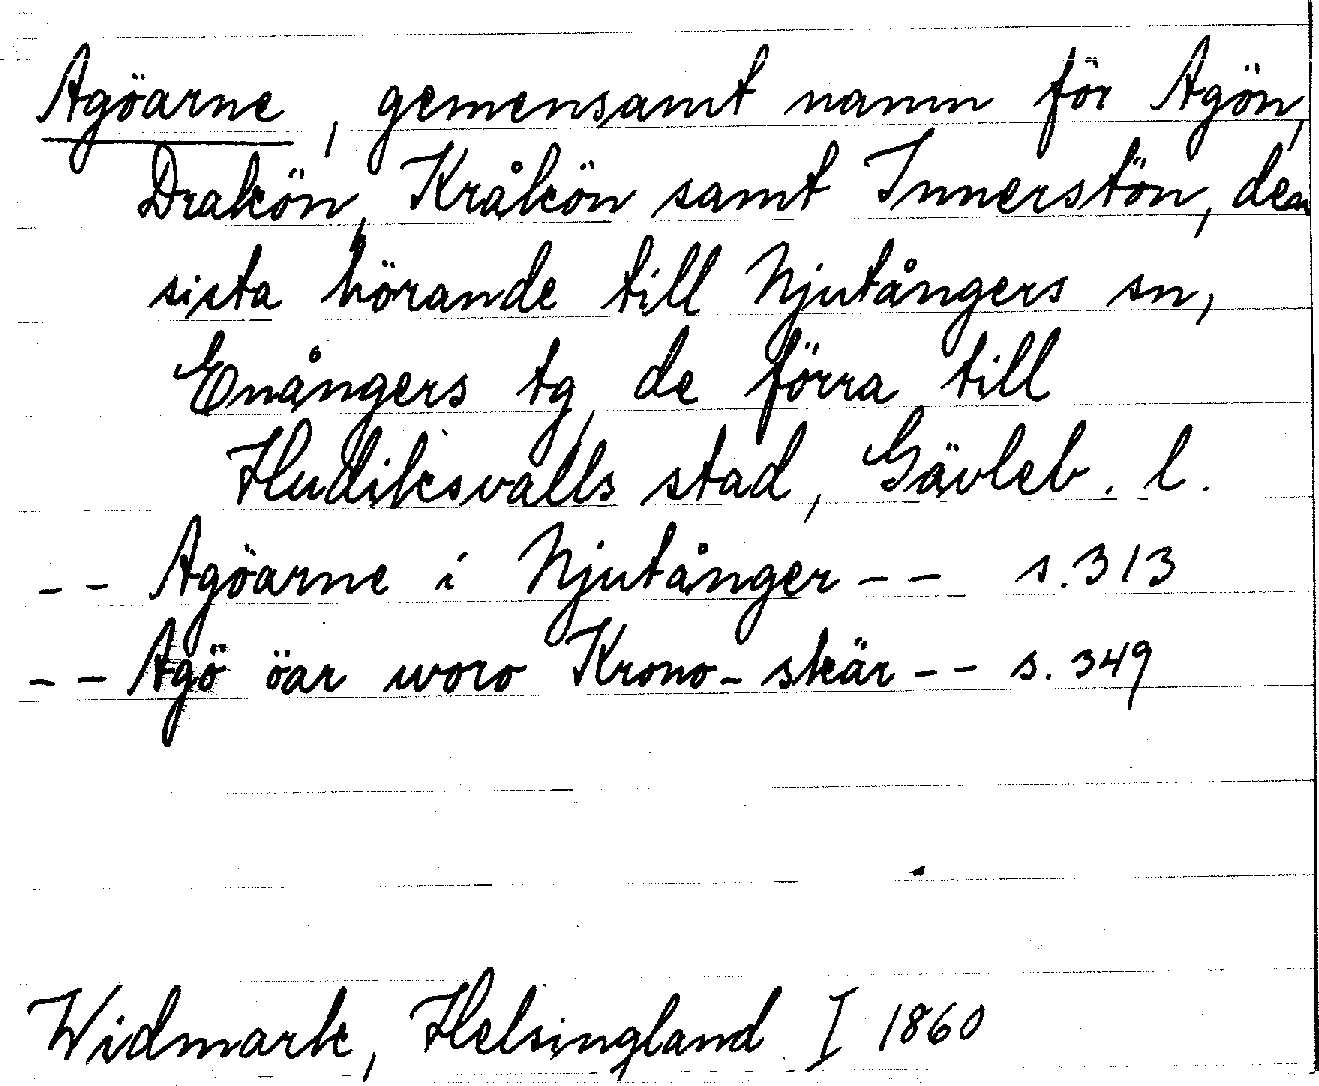 Agöarne, gemensamt namn för Agön,
Drakön, Kråkön samt Innerstön, den
sista hörande till Njutångers sn,
Enångers tg, de förra till
Hudiksvalls stad, Gävleb. l.
-- Agöarne i Njutånger -- s. 313
-- Agö öar woro Krono-skär -- s. 349
Widmark, Helsingland I 1860